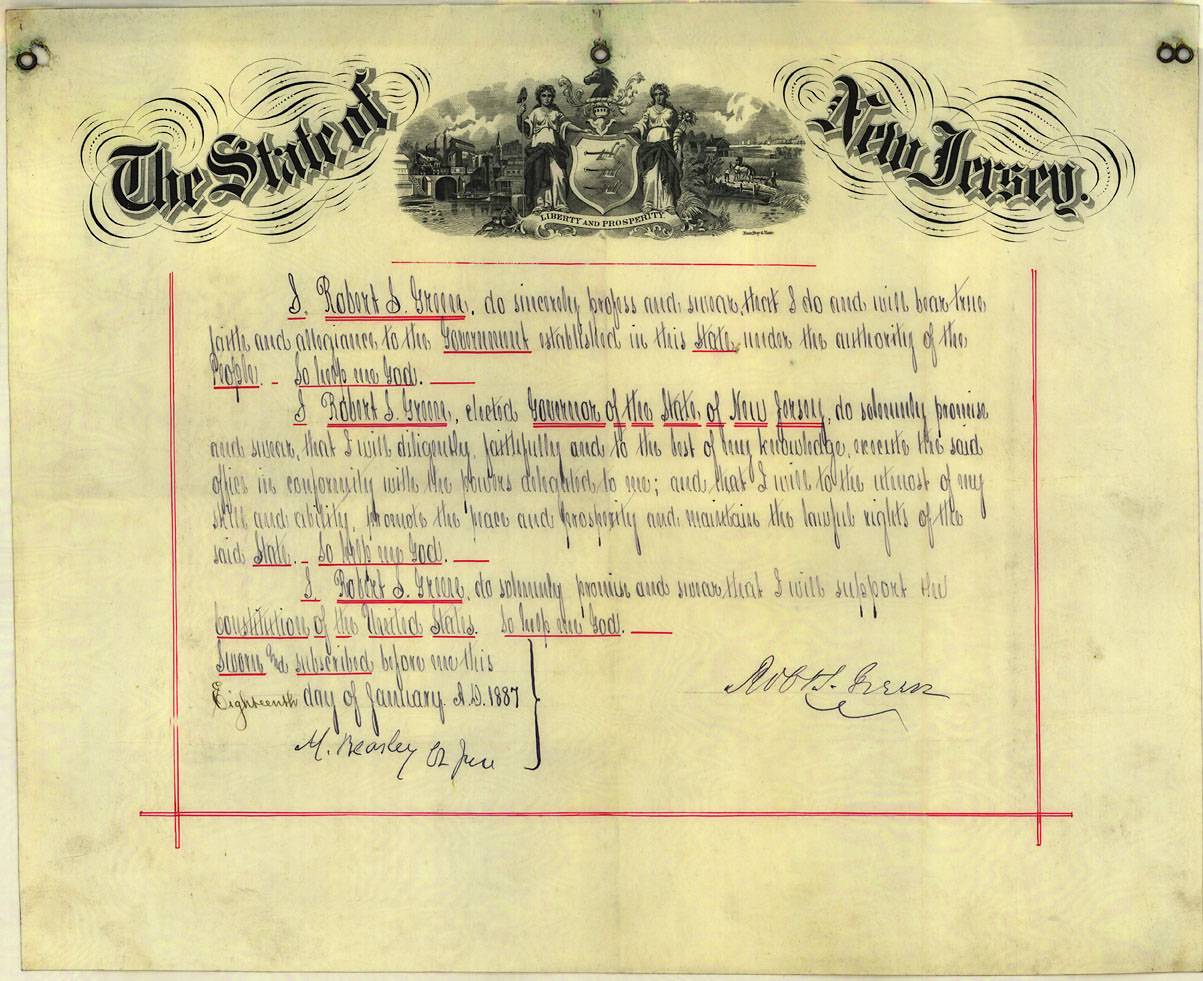 The State of New Jersey.
LIBERTY AND PROSPERITY
I, Robert S. Green, do sincerely profess and swear, that I do and will bear true
faith and allegiance to the Government established in this State, under the authority of the
People. - So help me God.
I, Robert S. Green, elected Governor of the State, of New Jersey, do solemnly promise
and swear, that I will diligently, faithfully and to the best of my knowledge, execute the said
office in conformity with the powers delegated to me; and that I will to the utmost of my
skill and ability, promote the peace and prosperity and maintain the lawful rights of the
said State. - So help me God.
I, Robert S. Green, do solemnly promise and swear that I will support the
Constitution of the United States. So help me God.
Sworn and subscribed before me this
Eighteenth day of January. A.D. 1887
Robt S. Green
M. Beasley Ch Jus